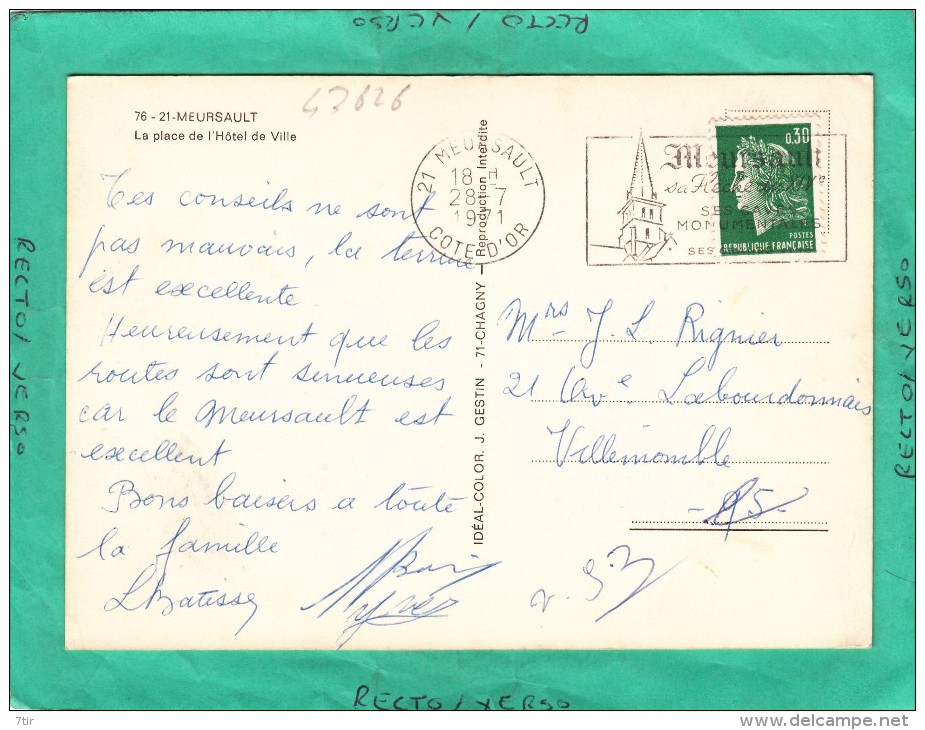 RECTO/VERSO
43626
76 - 21-MEURSAULT
La place de l'Hôtel de Ville
21 MEURSAULT
18 H
28-7
1971
COTE-D'OR
Meursault
sa Flèche XVe
SES
MONUMENTALES
SES
0,30
POSTES
RÉPUBLIQUE FRANÇAISE
Tes conseils ne sont
pas mauvais, la terrine
est excellente
Heureusement que les
routes sont sinueuses
car le Meursault est
excellent
Bons baisers a toute
la famille
IDÉAL-COLOR, J. GESTIN - 71-CHAGNY - Reproduction Interdite
Mrs J. L. Rignier
21 Ave Labourdonnais
Villemomble
RECTO/VERSO
RECTO/VERSO
RECTO/VERSO
7tir
www.delcampe.net